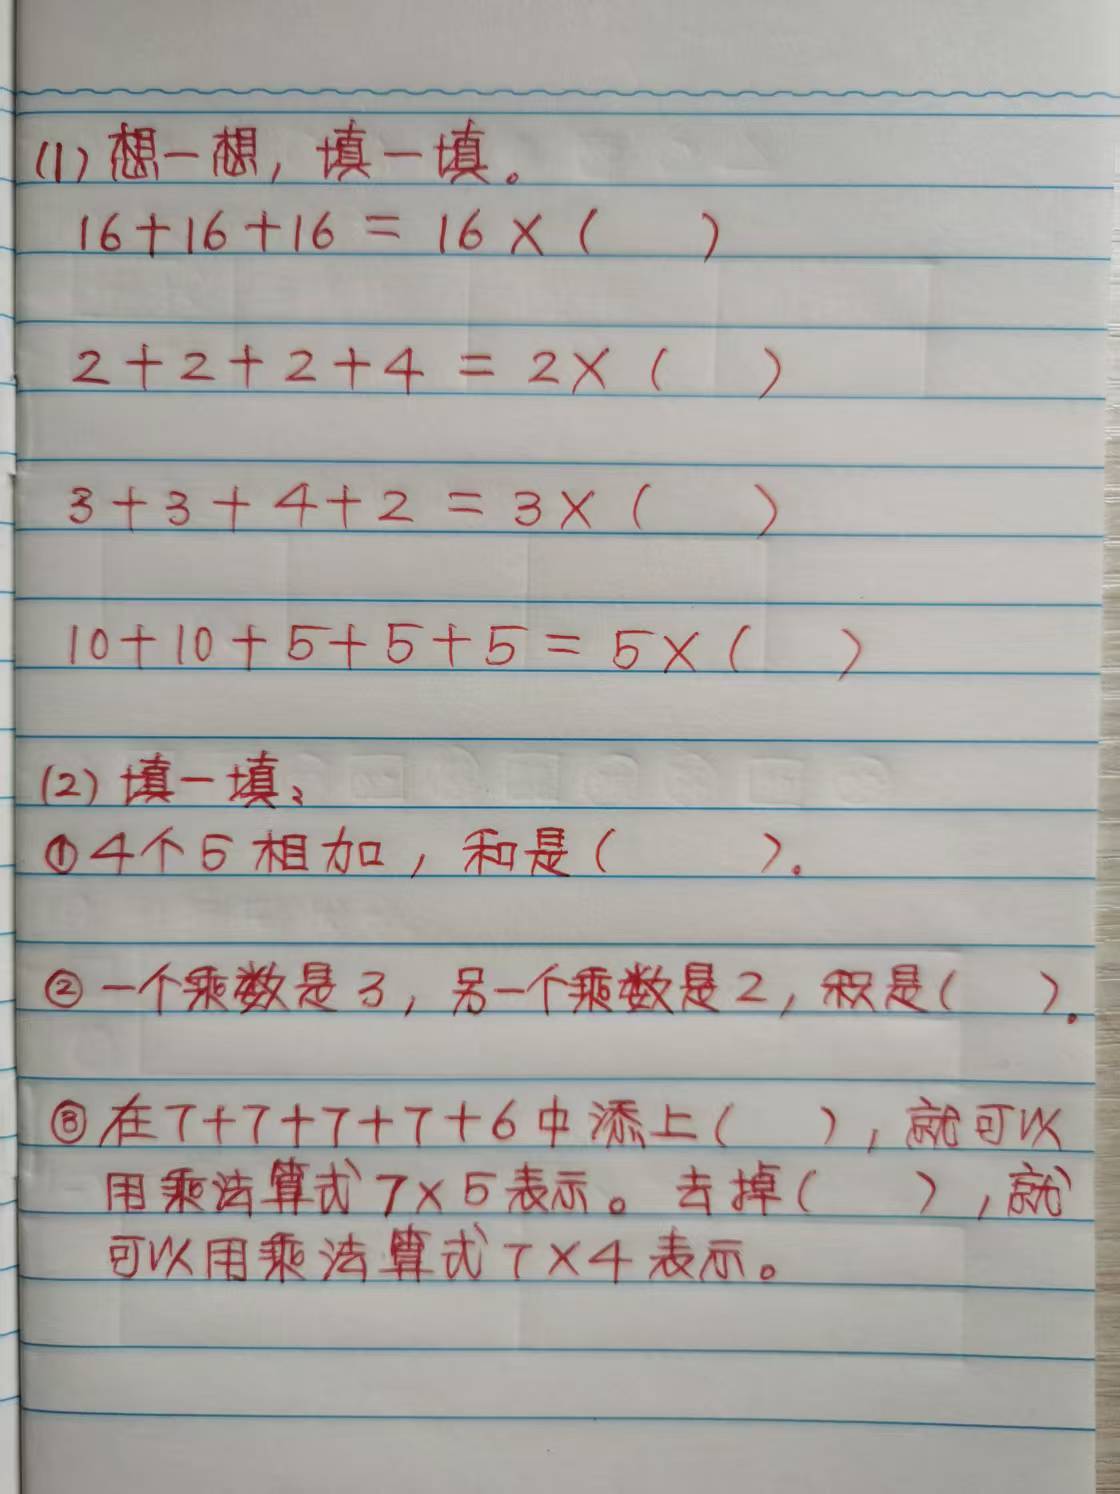 (1) 想一想, 填一填。
16+16+16 = 16×(   )
2+2+2+4 = 2×(   )
3+3+4+2 = 3×(   )
10+10+5+5+5 = 5×(   )
(2) 填一填:
①4个5相加, 和是(   ).
②一个乘数是3, 另一个乘数是2, 积是(   ).
③在7+7+7+7+6中添上(   ), 就可以
用乘法算式7×5表示。去掉(   ), 就
可以用乘法算式7×4表示。